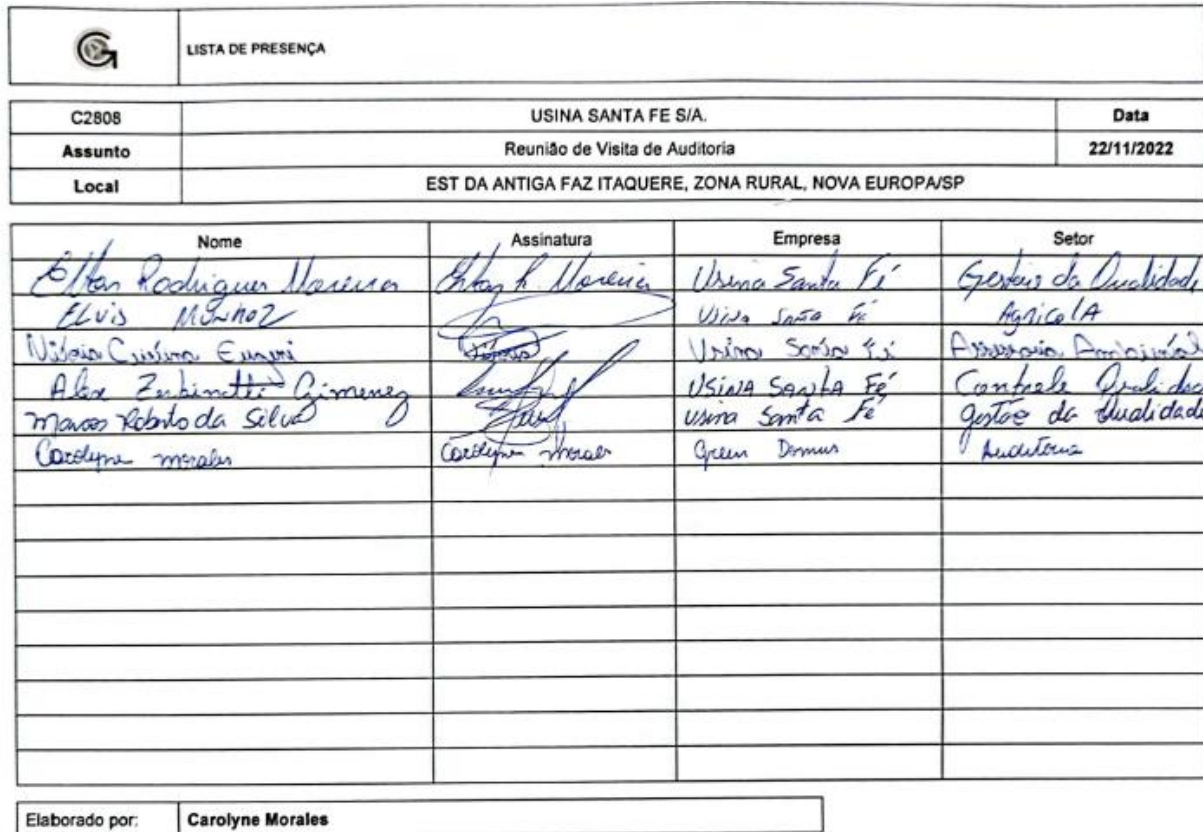 LISTA DE PRESENÇA
C2808 USINA SANTA FE S/A. Data
Assunto Reunião de Visita de Auditoria 22/11/2022
Local EST DA ANTIGA FAZ ITAQUERE, ZONA RURAL, NOVA EUROPA/SP
Nome Assinatura Empresa Setor
Elton Rodrigues Moreira Elton R. Moreira Usina Santa Fé Gestão da Qualidade
ELVIS MUNHOZ Usina Santa Fé AgRicolA
Cristina Usina Santa Fé Assessoria Ambiental
Alex Gimenez USINA SANTA FÉ Controle Qualidad
Marcos Roberto da Silva usina Santa Fé gestão da Qualidade
Carolyne morales Carolyne morales Green Domus Auditoria
Elaborado por: Carolyne Morales